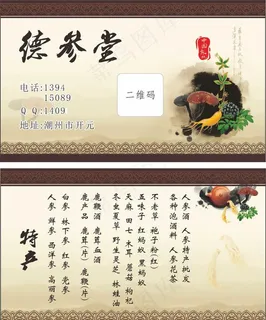 德参堂
电话:1394
15089
QQ:1409
地址:潮州市开元
二维码
中国
特产
人参酒 人参特产批发
各种泡酒料 人参花茶
不老草 袍子粉(红)
五味子 红蚂蚁 黑蚂蚁
天麻 田七 木耳 蘑菇 枸杞
冬虫夏草 野生灵芝 林蛙油
鹿鞭酒 鹿茸血酒
鹿产品 鹿茸(片)
鹿鞭(片)
白参 林下参 红参 党参
人参 鲜参 西洋参 高丽参